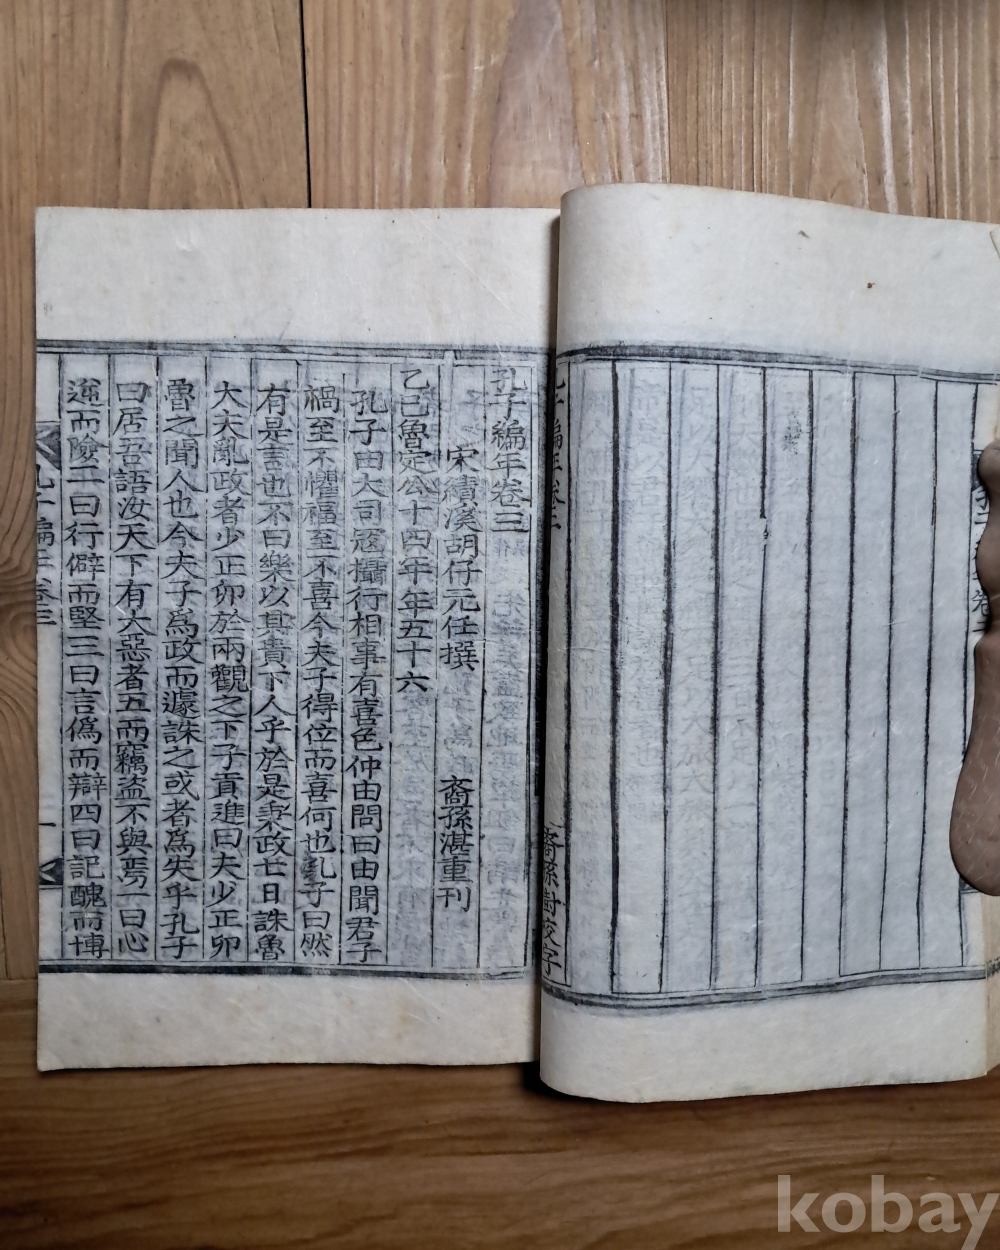 裔孫樹校字
孔子編年卷三
宋績溪胡仔元任撰 裔孫湛重刊
乙巳魯定公十四年年五十六
孔子由大司寇攝行相事有喜色仲由問曰由聞君子
禍至不懼福至不喜今夫子得位而喜何也孔子曰然
有是言也不曰樂以其貴下人乎於是秉政七日誅魯
大夫亂政者少正卯於兩觀之下子貢進曰夫少正卯
魯之聞人也今夫子為政而遽誅之或者為失乎孔子
曰居吾語汝天下有大惡者五而竊盜不與焉一曰心
逆而險二曰行僻而堅三曰言僞而辯四曰記醜而博
孔子編年卷三
一
kobay